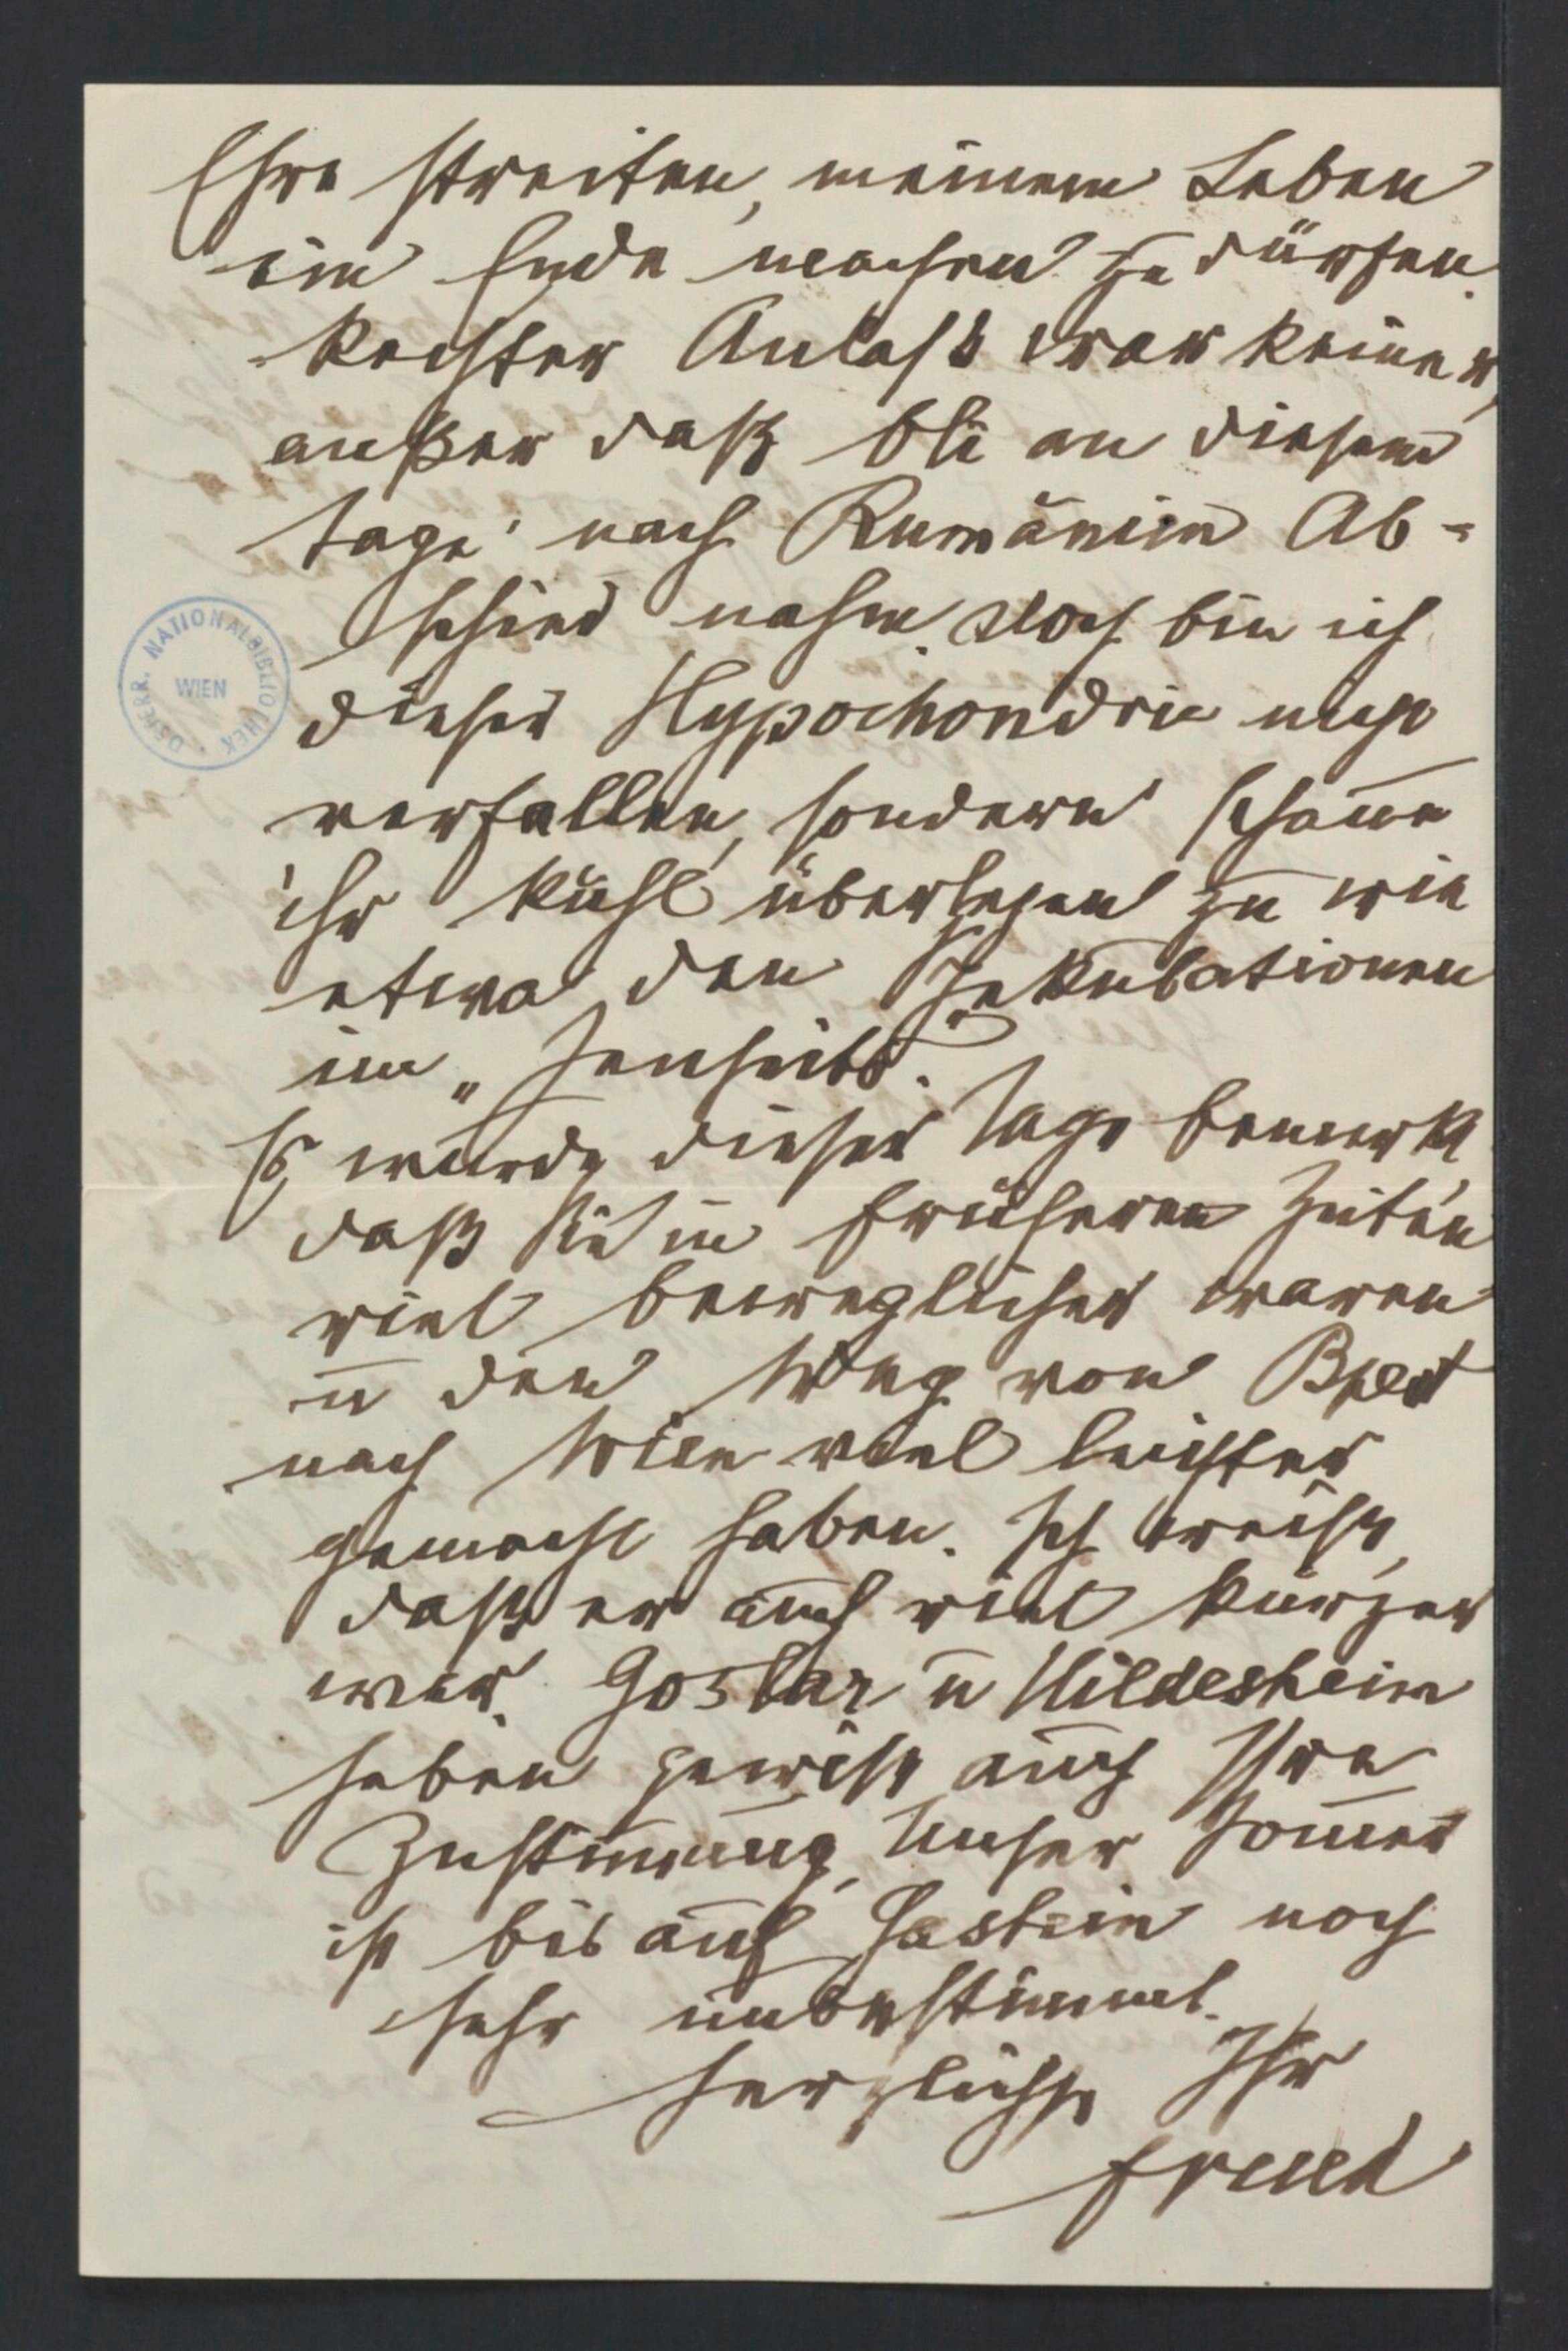 Ehre streiten, meinem Leben
ein Ende machen zu dürfen.
Rechter Anlaß war keiner,
außer daß Oli an diesem
Tage nach Rumänien Ab-
schied nahm. Doch bin ich
dieser Hypochondrie nicht
verfallen, sondern schaue
ihr kühl überlegen zu wie
etwa den Spekulationen
im „Jenseits".
Es wurde dieser Tage bemerkt,
daß Sie in früheren Zeiten
viel beweglicher waren
u den Weg von Bpest
nach Wien viel leichter
gemacht haben. Ich weiß,
daß er auch viel kürzer
war. Goslar u Hildesheim
haben gewiß auch Ihre
Zustimmung. Unser Sommer
ist bis auf Gastein noch
sehr unbestimmt.
Herzlichst Ihr
Freud
ÖSTERR. NATIONALBIBLIOTHEK
WIEN